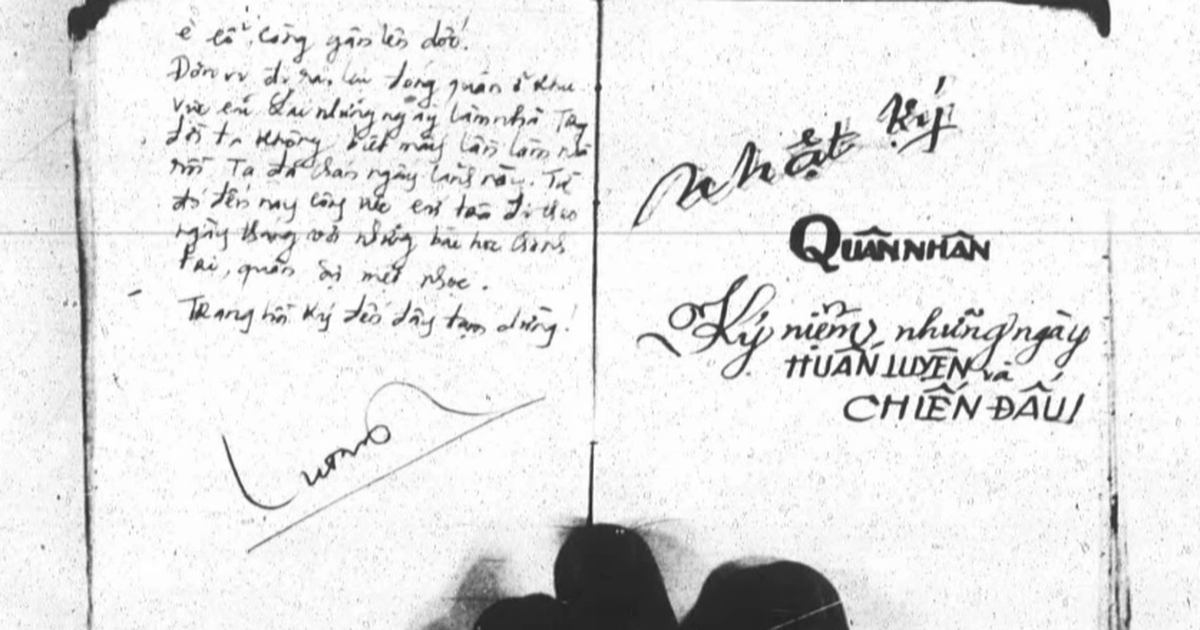 è cổ, cõng gần lên dốc!
Đơn vị đóng quân ở khu
vực em. Sau những ngày làm nhà Tay
không biết mấy lần làm nhà
rồi. Ta đã chán ngấy lắm rồi. Từ
đó đến nay công việc cứ theo
ngày tháng với những bài học chính
trị, quân sự mệt nhọc.
Trang hồi ký đến đây tạm dừng!
Lương
Nhật Ký
QUÂN NHÂN
Kỷ niệm những ngày
HUẤN LUYỆN và
CHIẾN ĐẤU!